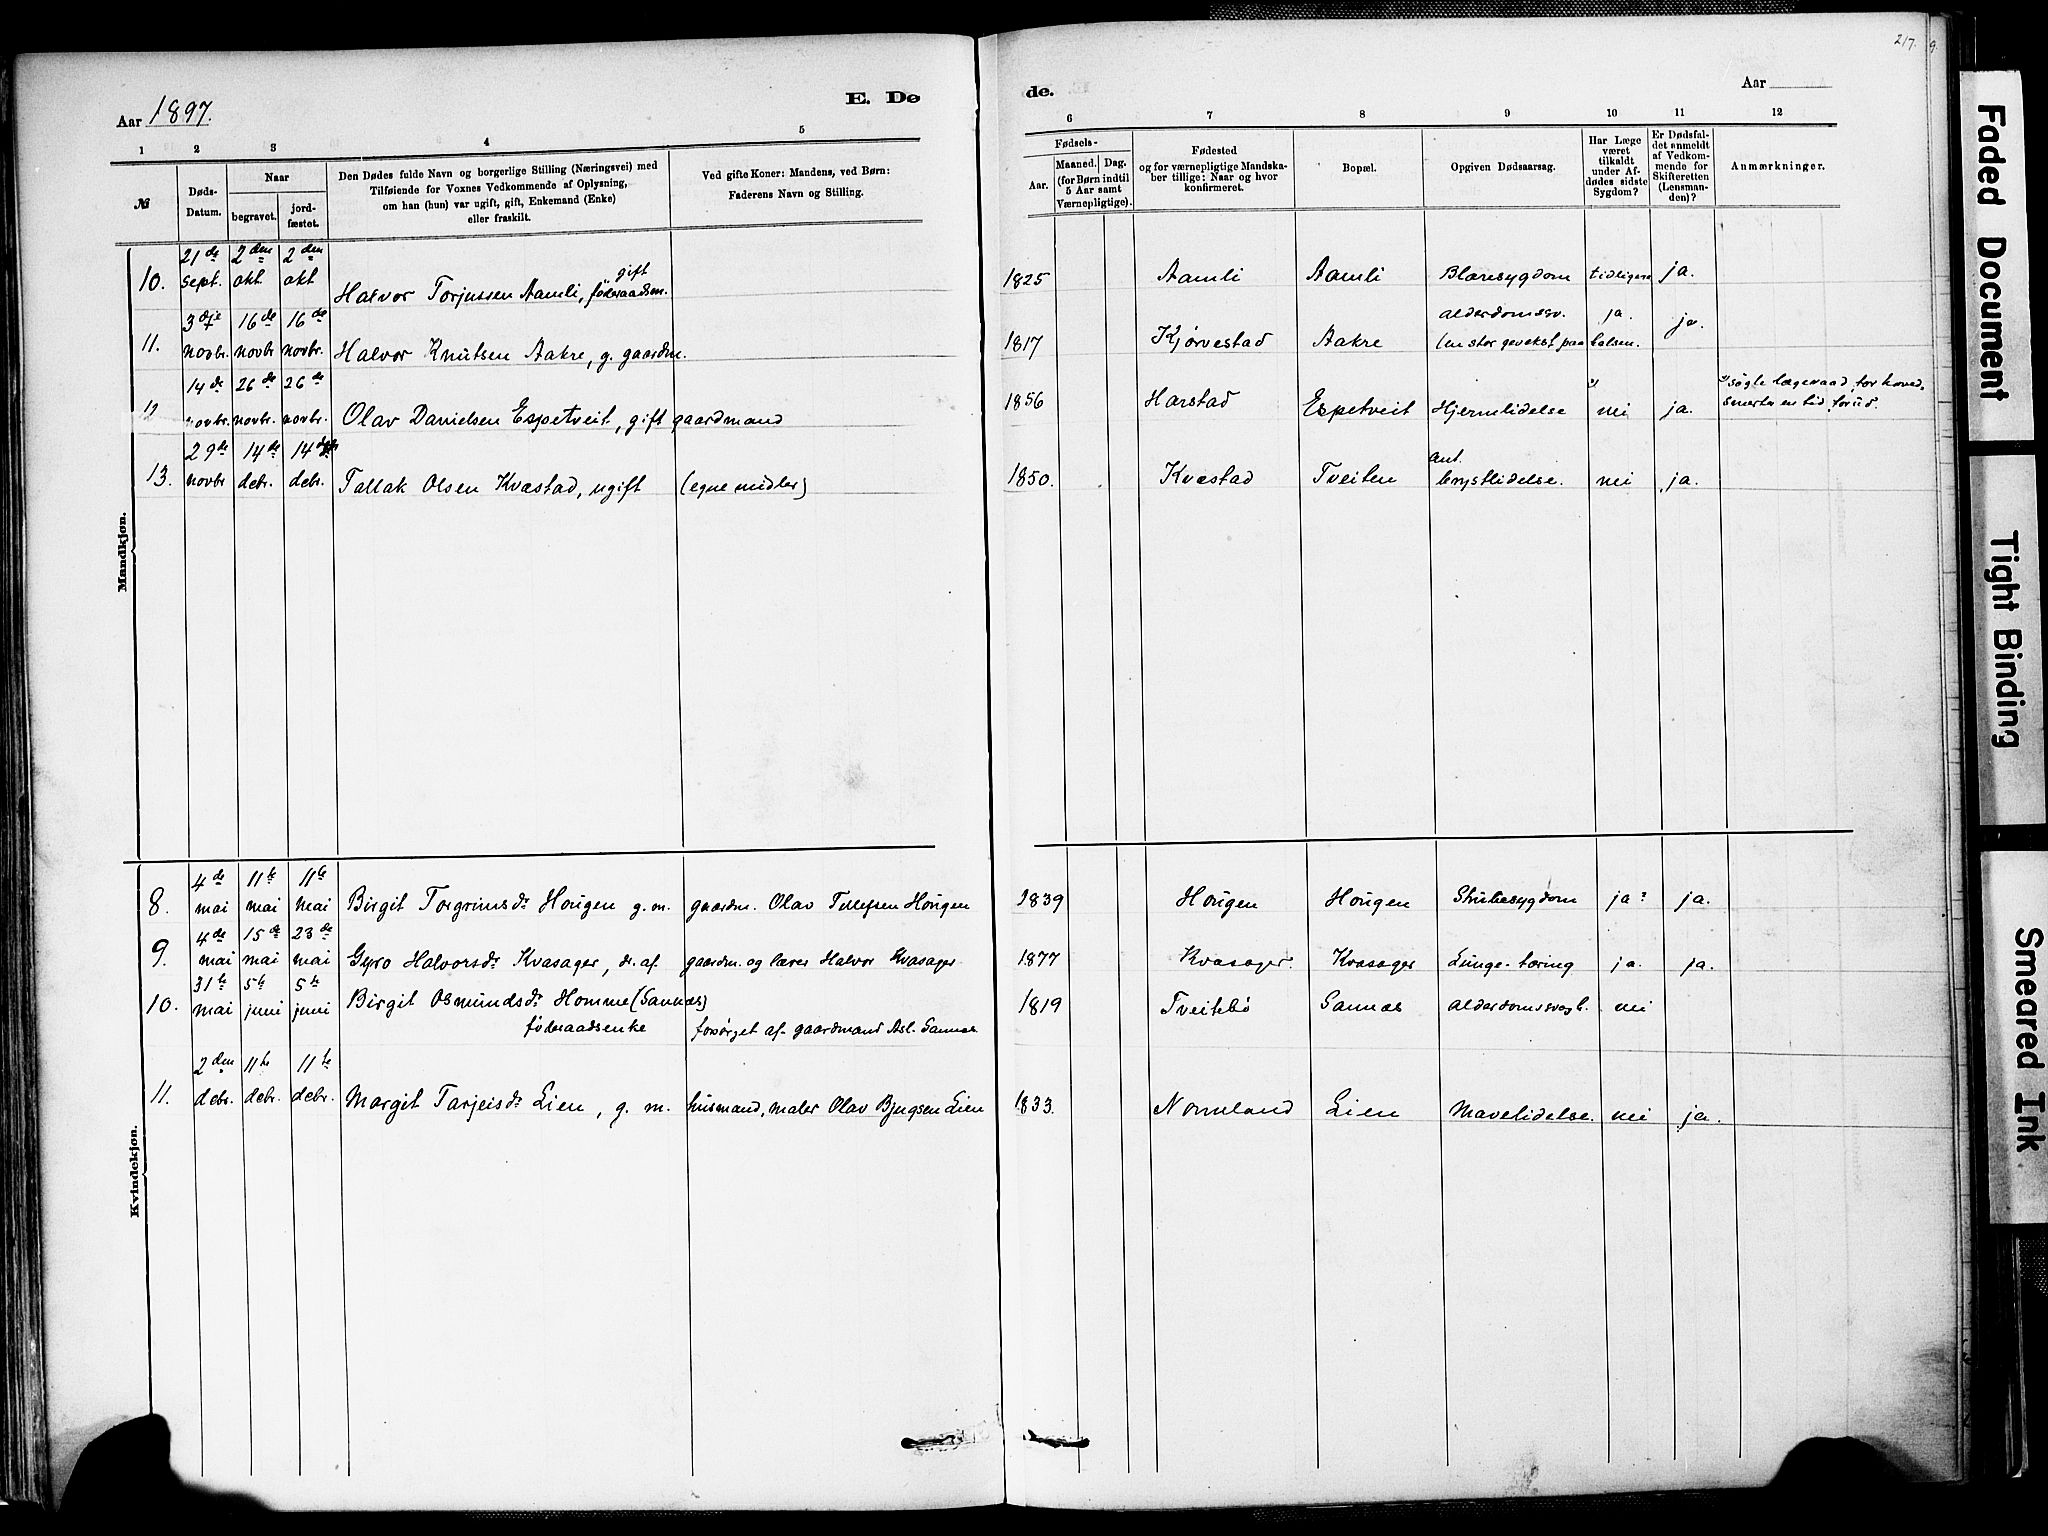 217. 9.
Aar 1897. E. Dø de. Aar
1 2 3 4 5 6 7 8 9 10 11 12
№
Døds-Datum.
Naar
begravet. jordfæstet.
Den Dødes fulde Navn og borgerlige Stilling (Næringsvei) med
Tilføiende for Voxnes Vedkommende af Oplysning,
om han (hun) var ugift, gift, Enkemand (Enke)
eller fraskilt.
Ved gifte Koner: Mandens, ved Børn:
Faderens Navn og Stilling.
Fødsels-
Aar.
Maaned. Dag.
(for Børn indtil
5 Aar samt
Værnepligtige).
Fødested
og for værnepligtige Mandska-
ber tillige: Naar og hvor
konfirmeret.
Bopæl.
Opgiven Dødsaarsag.
Har Læge
været
tilkaldt
under Af-
dødes sidste
Sygdom?
Er Dødsfal-
det anmeldt
af Vedkom-
mende for
Skifteretten
(Lensman-
den)?
Anmærkninger.
Mandkjøn.
10. 21de sept. 2den okt. 2den okt Halvor Torjussen Aamli, gift føderaadsm. 1825 Aamli Aamli Blæresygdom tidligere ja.
11. 3dje novbr. 16de novbr 16de novbr. Halvor Knutsen Aakre, g. gaardm. 1817 Kjørvestad Aakre alderdomssv. (en stor gevekst paa halsen. ja. ja.
12 14de novbr. 26de novbr. 26de novbr. Olav Danielsen Espetveit, gift gaardmand 1856 Harstad Espetveit Hjernelidelse nei ja. søgte lægeraad for hoved-
smerter en tid forud.
13. 29de novbr 14de debr. 14de debr. Tallak Olsen Kvæstad, ugift (egne midler) 1850. Kvæstad Tveiten ant. brystlidelse. nei ja.
Kvindekjøn.
8. 4de mai 11te mai 11te mai Birgit Torgrimsdr Hougen g. m. gaardm. Olav Tellefsen Hougen 1839 Hougen Hougen Strubesygdom ja? ja.
9. 4de mai 15de mai 23de mai Gyro Halvorsdr Kvasager, dr. af gaardm. og lærer Halvor Kvasager 1877 Kvasager. Kvasager Lunge-tæring ja. ja.
10. 31te mai 5te juni 5te juni Birgit Osmundsdr Homme (Sannæs)
føderaadsenke forsørget af gaardmand Asl. Sannæs 1819 Tveitebø Sannæs alderdomssvagh. nei
11. 2den debr. 11te debr. 11te debr. Margit Tarjeisdr Lien, g. m. husmand, maler Olav Bjugsen Lien 1833. Nomeland Lien Mavelidelse. nei ja.
Faded Document
Tight Binding
Smeared Ink